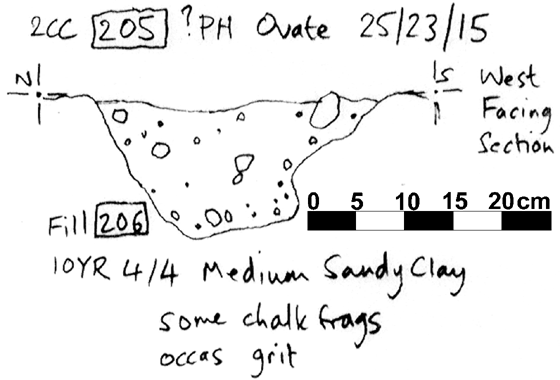 2CC 205 ?PH Ovate 25/23/15
N S West
Facing
Section
0 5 10 15 20cm
Fill 206
10YR 4/4 Medium Sandy Clay
some chalk frags
occas grit